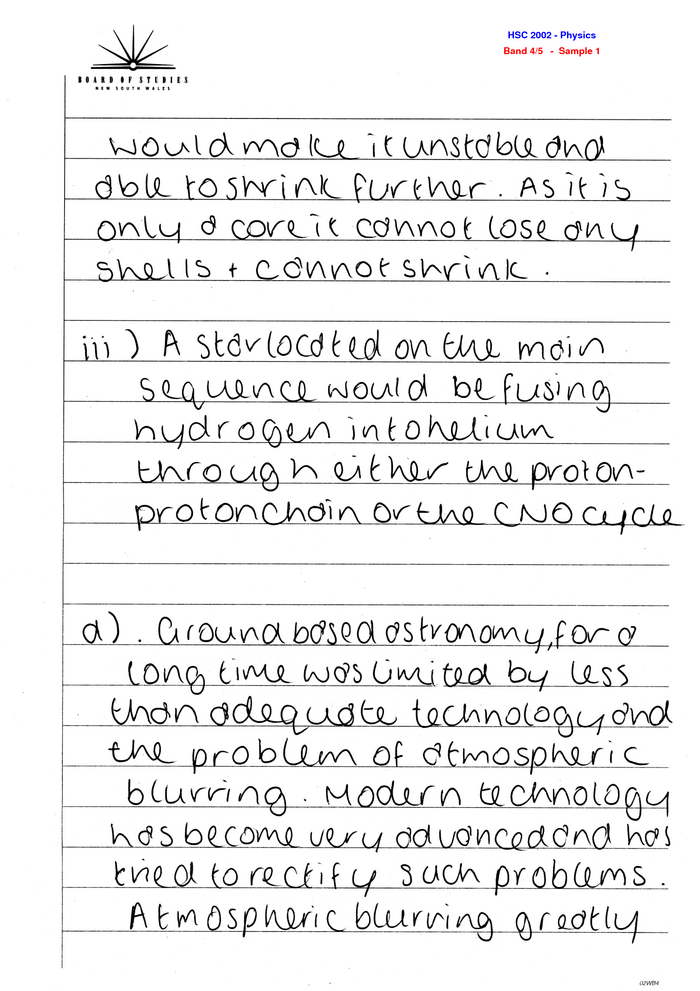 HSC 2002 - Physics
Band 4/5 - Sample 1
BOARD OF STUDIES
NEW SOUTH WALES
would make it unstable and
able to shrink further. As it is
only a core it cannot lose any
shells + cannot shrink.
iii) A star located on the main
sequence would be fusing
hydrogen into helium
through either the proton-
proton chain or the CNO cycle
d). Ground based astronomy, for a
long time was limited by less
than adequate technology and
the problem of atmospheric
blurring. Modern technology
has become very advanced and has
tried to rectify such problems.
Atmospheric blurring greatly
02WB4